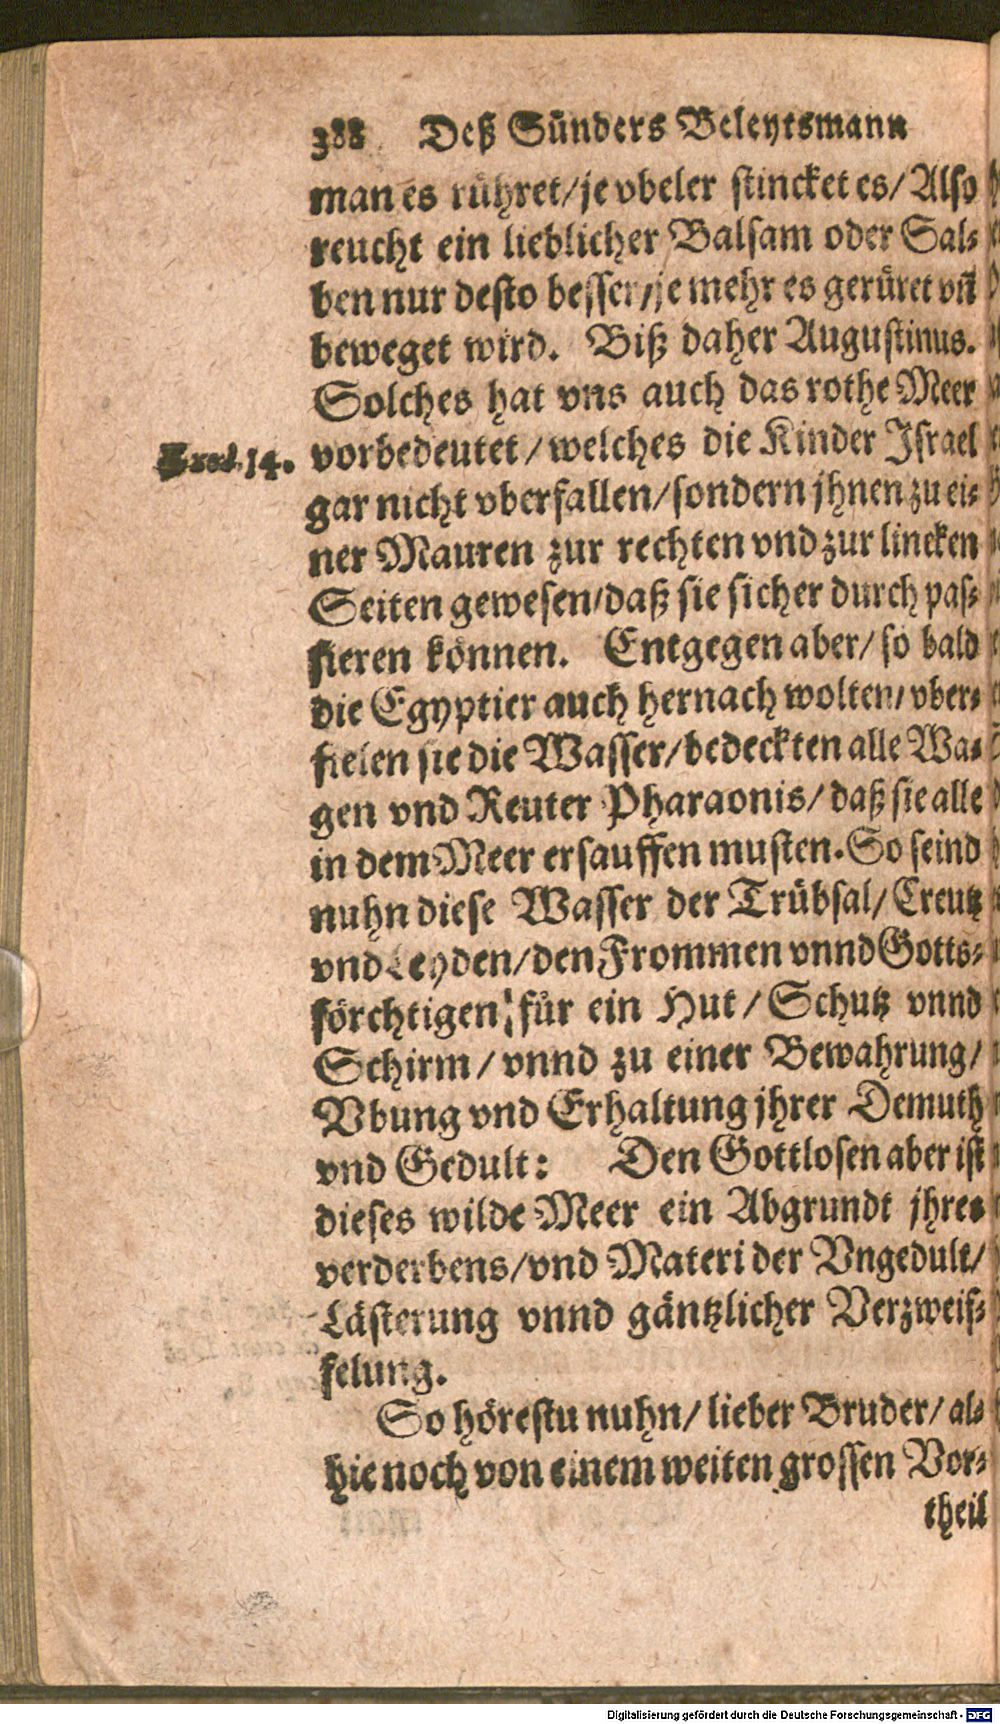 388 Deß Sünders Beleytsmann
man es rühret/je vbeler stincket es/Also
reucht ein lieblicher Balsam oder Sal-
ben nur desto besser/je mehr es gerüret vñ
beweget wird. Biß daher Augustinus.
Solches hat vns auch das rothe Meer
Exod. 14. vorbedeutet/welches die Kinder Israel
gar nicht vberfallen/sondern jhnen zu ei-
ner Mauren zur rechten vnd zur lincken
Seiten gewesen/daß sie sicher durch pas-
sieren können. Entgegen aber/so bald
die Egyptier auch hernach wolten/vber-
fielen sie die Wasser/bedeckten alle Wa-
gen vnd Reuter Pharaonis/daß sie alle
in dem Meer ersauffen musten. So seind
nuhn diese Wasser der Trübsal/Creutz
vnd Leyden/den Frommen vnnd Gotts-
förchtigen/für ein Hut/Schutz vnnd
Schirm/vnnd zu einer Bewahrung/
Vbung vnd Erhaltung jhrer Demuth
vnd Gedult: Den Gottlosen aber ist
dieses wilde Meer ein Abgrundt jhres
verderbens/vnd Materi der Vngedult/
Lästerung vnnd gäntzlicher Verzweif-
felung.
So hörestu nuhn/lieber Bruder/al-
hie noch von einem weiten grossen Vor-
theil
Digitalisierung gefördert durch die Deutsche Forschungsgemeinschaft - DFG